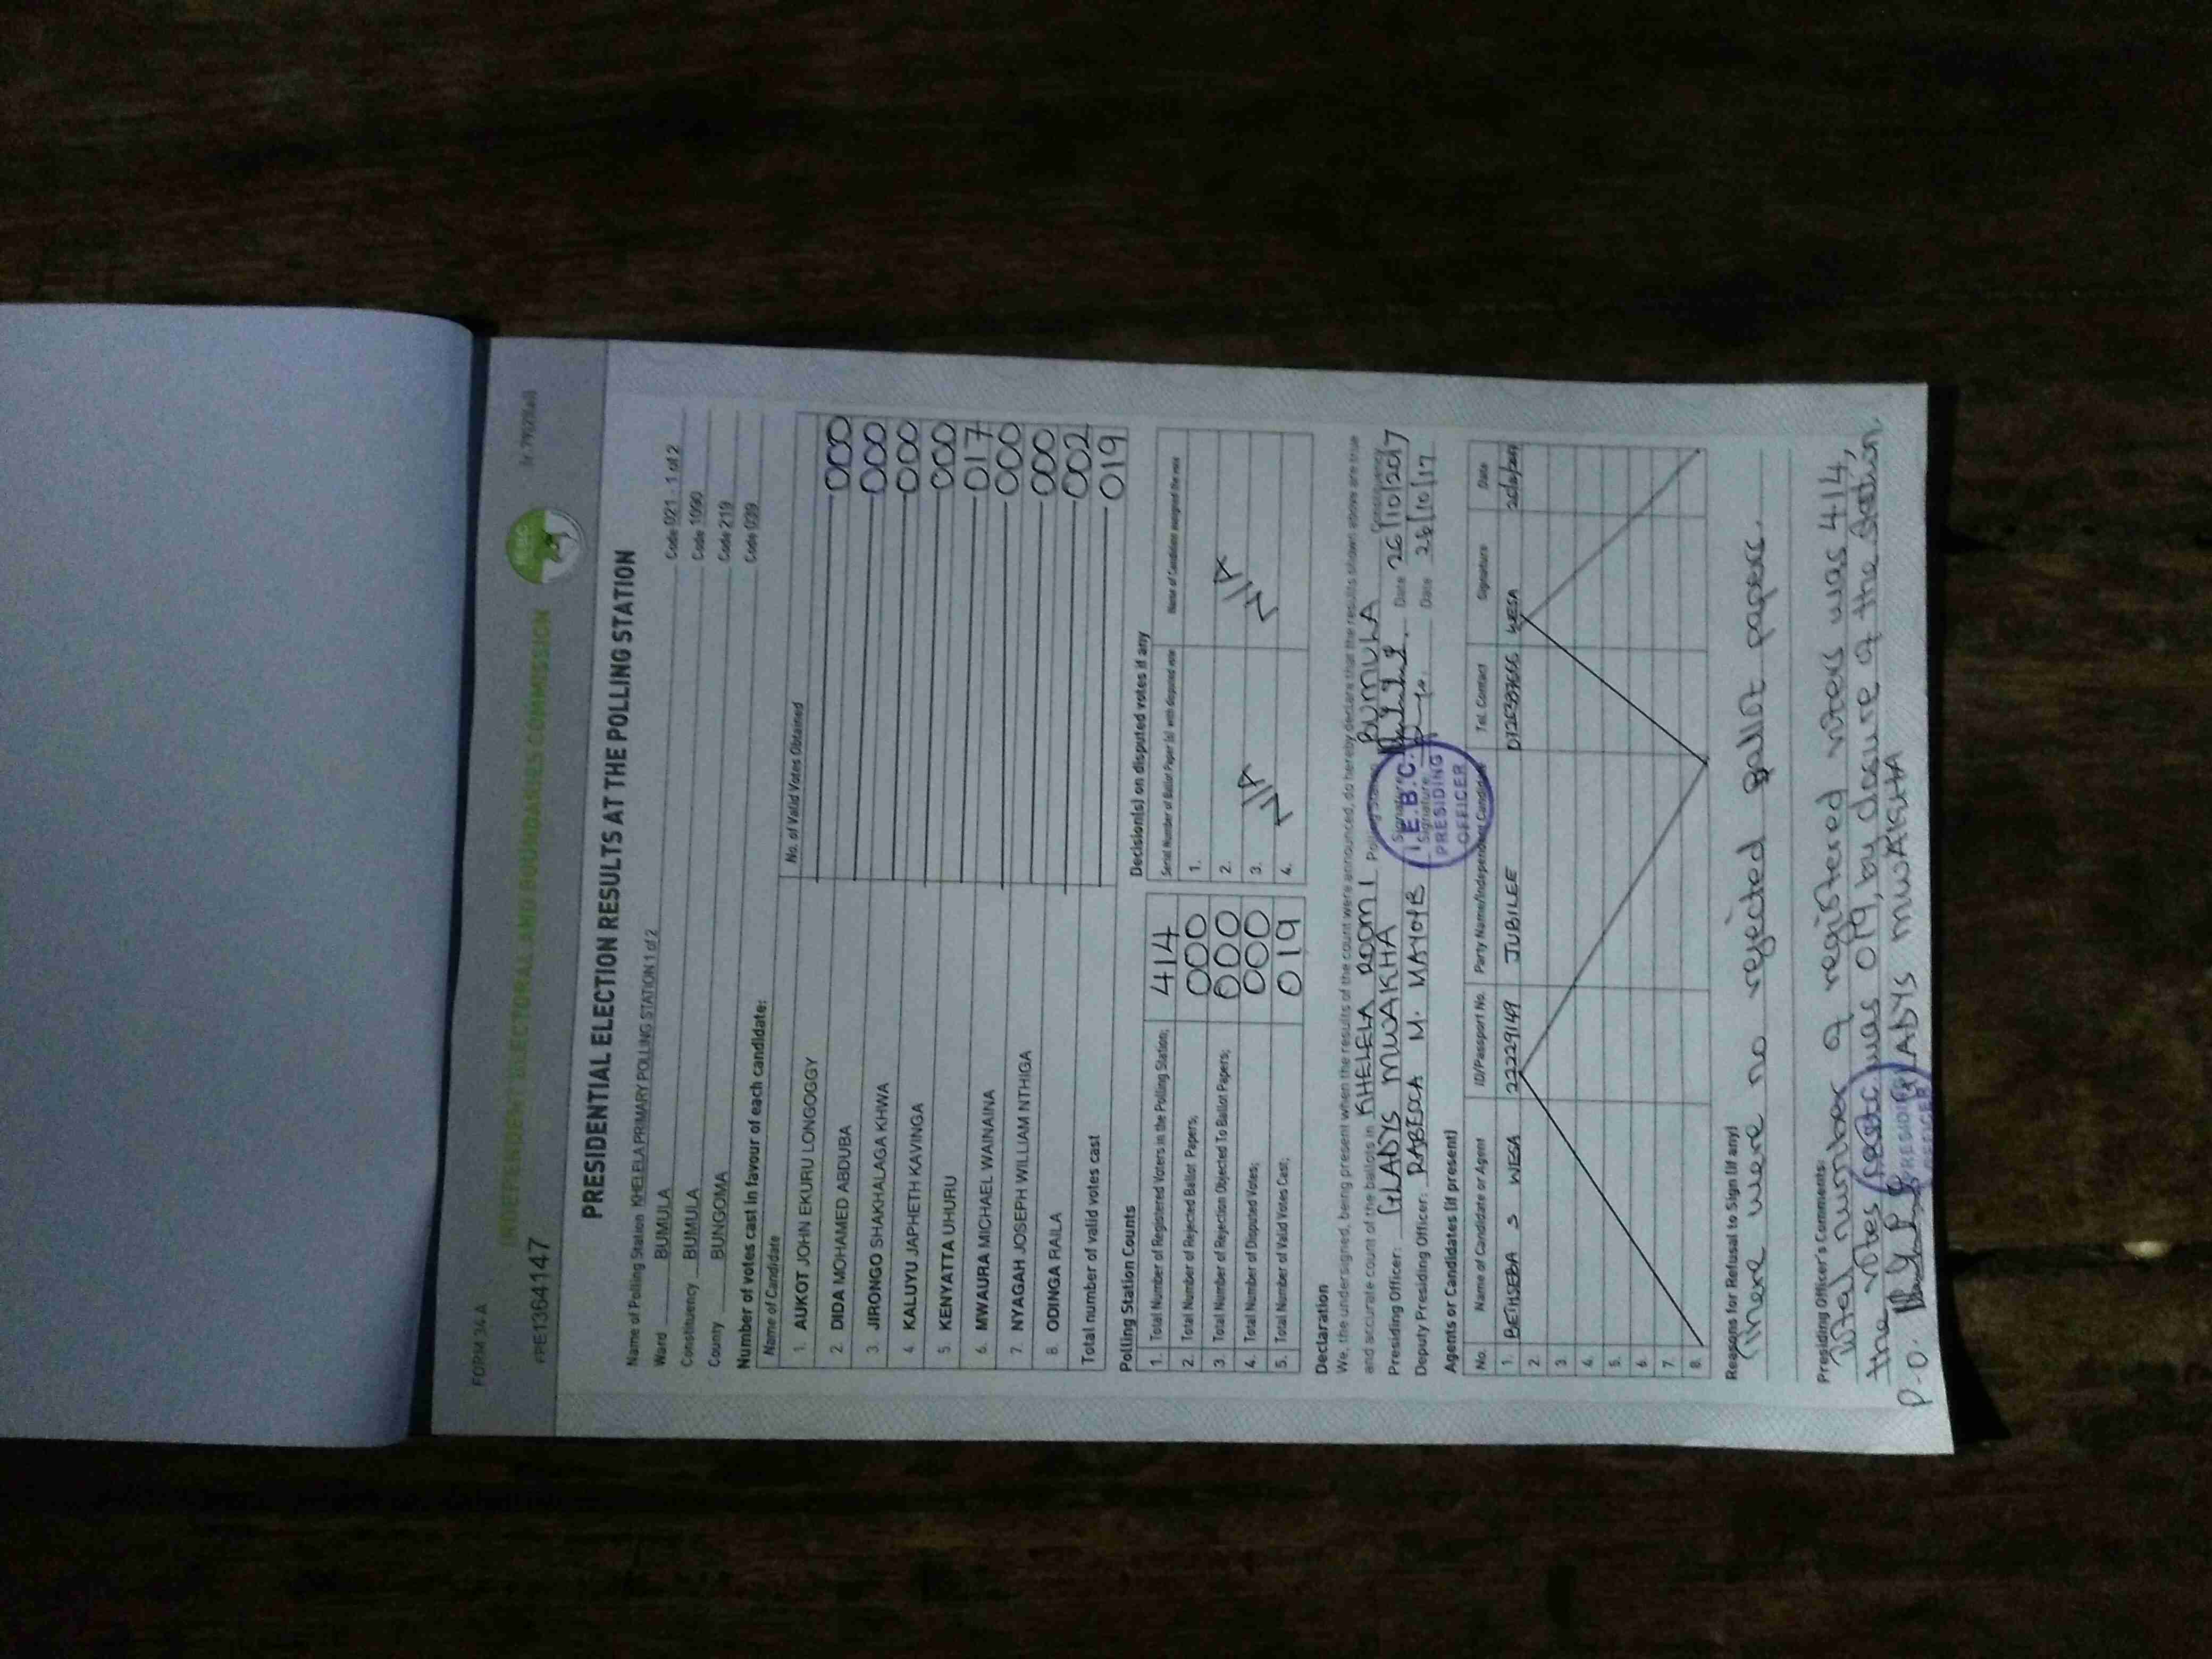 FORM 34 A
INDEPENDENT ELECTORAL AND BOUNDARIES COMMISSION
FPE1364147
PRESIDENTIAL ELECTION RESULTS AT THE POLLING STATION
Name of Polling Station KHELELA PRIMARY POLLING STATION 1 of 2 Code 021 1 of 2
Ward BUMULA Code 1090
Constituency BUMULA Code 219
County BUNGOMA Code 039
Number of votes cast in favour of each candidate:
Name of Candidate No. of Valid Votes Obtained
1. AUKOT JOHN EKURU LONGOGGY 000
2. DIDA MOHAMED ABDUBA 000
3. JIRONGO SHAKHALAGA KHWA 000
4. KALUYU JAPHETH KAVINGA 000
5. KENYATTA UHURU 017
6. MWAURA MICHAEL WAINAINA 000
7. NYAGAH JOSEPH WILLIAM NTHIGA 000
8. ODINGA RAILA 002
Total number of valid votes cast 019
Polling Station Counts
1. Total Number of Registered Voters in the Polling Station; 414
2. Total Number of Rejected Ballot Papers; 000
3. Total Number of Rejection Objected To Ballot Papers; 000
4. Total Number of Disputed Votes; 000
5. Total Number of Valid Votes Cast; 019
Decision(s) on disputed votes if any
Serial Number of Ballot Paper (s) with disputed vote Name of Candidate assigned the vote
1.
2. N/A
3. N/A N/A
4. N/A
Declaration
We, the undersigned, being present when the results of the count were announced, do hereby declare that the results shown above are true
and accurate count of the ballots in KHELELA ROOM 1 Polling Station BUMULA Constituency
Presiding Officer: GLADYS MWAKHA Signature Date 26/10/2017
Deputy Presiding Officer: RABECCA M. Signature Date 26/10/17
I.E.B.C.
PRESIDING
OFFICER
Agents or Candidates (if present)
No. Name of Candidate or Agent ID/Passport No. Party Name/Independent Candidate Tel. Contact Signature Date
1. BETHSEBA S WESA 22229149 JUBILEE WESA
2.
3.
4.
5.
6.
7.
8.
Reasons for Refusal to Sign (if any)
There were no rejected Ballot papers.
Presiding Officer's Comments:
Total number of registered voters was 414,
the votes was 019, by closure of the station.
P.O. GLADYS MWAKHA
PRESIDING
OFFICER